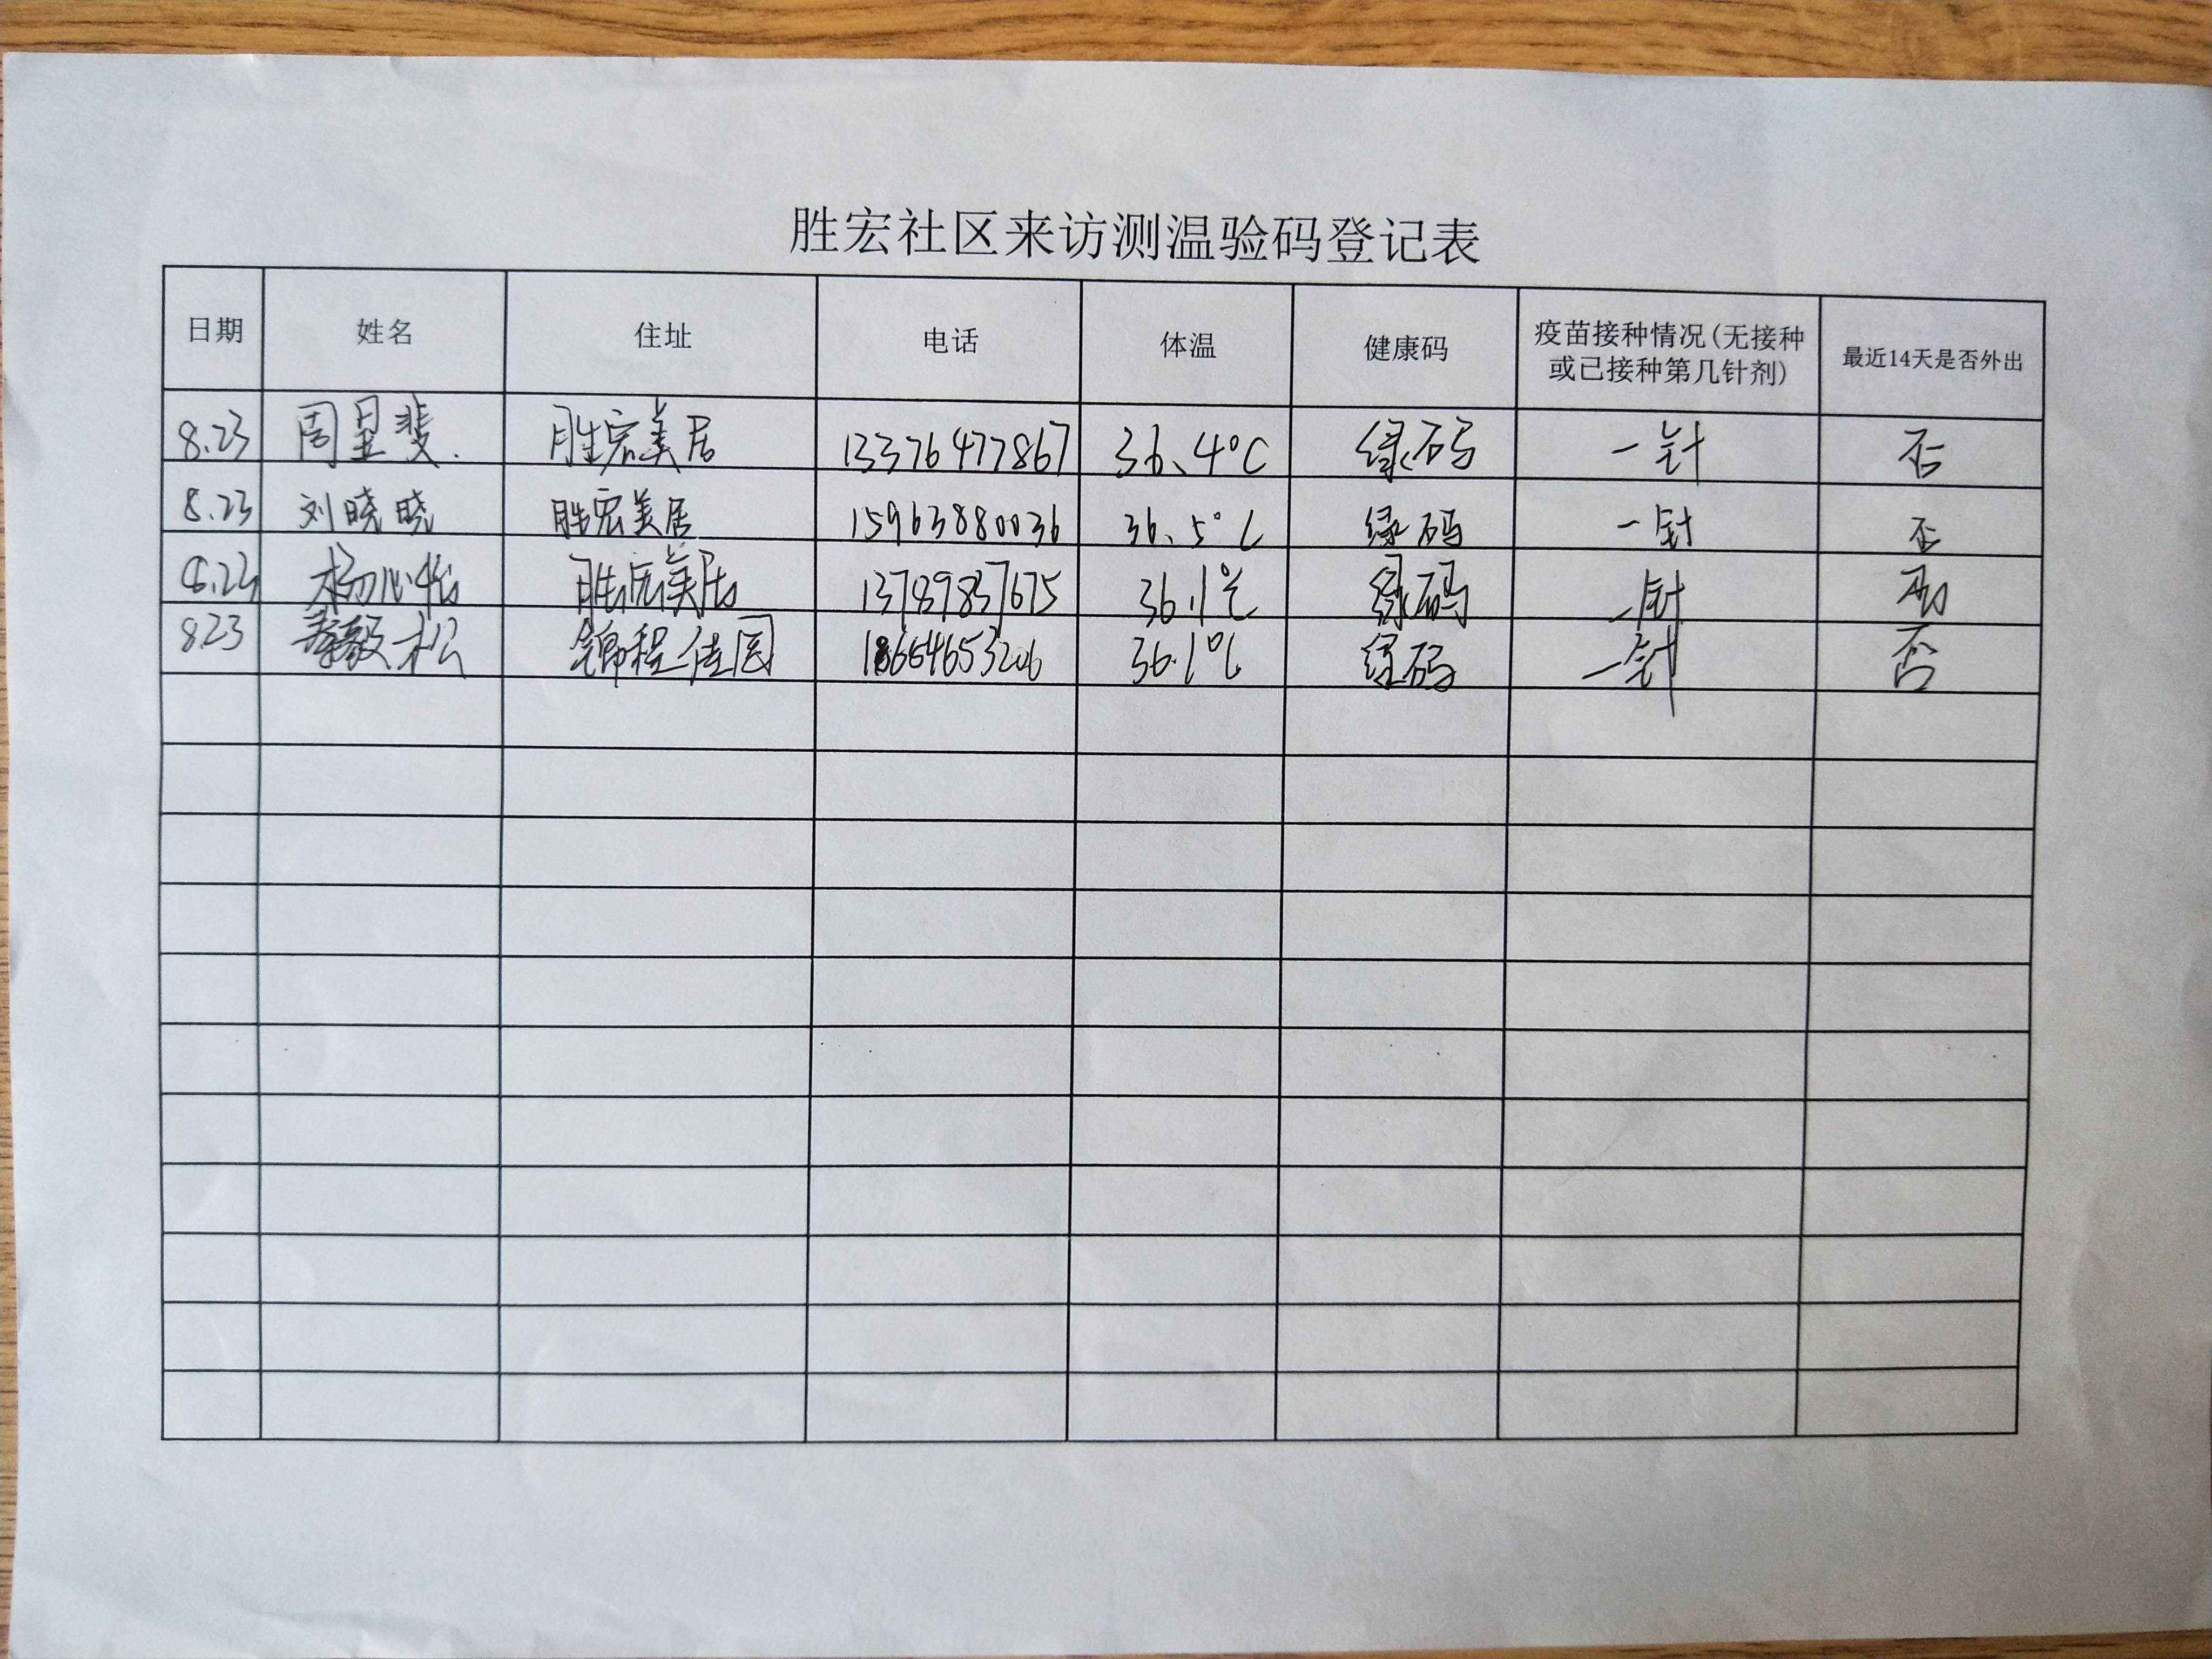 胜宏社区来访测温验码登记表
日期 姓名 住址 电话 体温 健康码 疫苗接种情况(无接种或已接种第几针剂) 最近14天是否外出
8.23 周昱斐. 胜宏美居 13376477867 36、4°C 绿码 一针 否
8.23 刘晓晓 胜宏美居 15963880036 36、5°C 绿码 一针 否
8.23 杨心怡 胜宏美居 13789837675 36.1℃ 绿码 一针 否
8.23 秦毅松 锦程佳园 18664653206 36.1℃ 绿码 一针 否